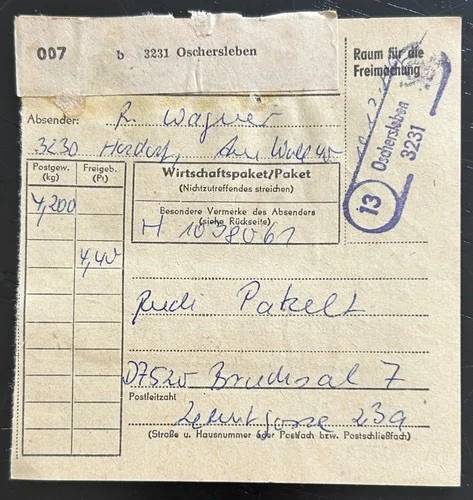 007 b 3231 Oschersleben
Raum für die
Freimachung
Absender: R. Wagner
3230 Hordorf, Am Wall
Oschersleben
3231
13
Postgew.
(kg)
Freigeb.
(Pf)
Wirtschaftspaket/Paket
(Nichtzutreffendes streichen)
Besondere Vermerke des Absenders
(siehe Rückseite)
H 1038061
4,200
4,40
Rudi Pakelt
D7520 Bruchsal 7
Postleitzahl
23a
(Straße u. Hausnummer oder Postfach bzw. Postschließfach)